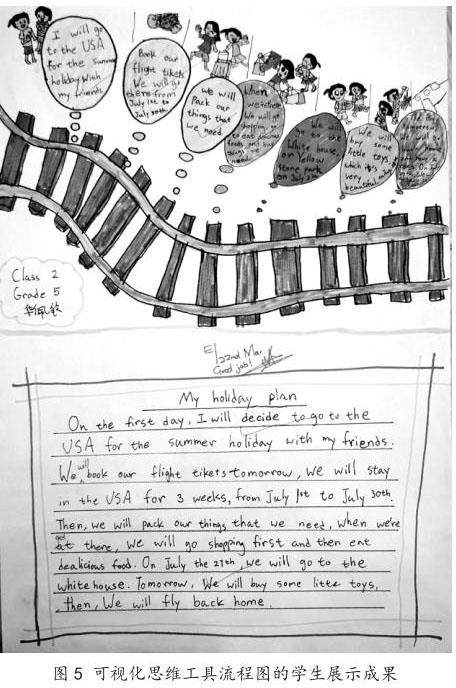 I will go
to the USA
for the summer
holiday with
my friends
Book our
flight tikets
We will go
there from
July 1st to
July 30th
We will
Pack our
things that
we need
When
we're there
We will go
shopping,
to eat
foods and buy
things
need
We will
go to
White house
on Yellow
stone park
on July
We will
buy some
little toys,
which is
very
beautiful
The
tomorrow
Class 2
Grade 5
22nd Mar
Good job!
My holiday plan
On the first day, I will decide to go to the
USA for the summer holiday with my friends.
We will book our flight tikets tomorrow, We will stay
in the USA for 3 weeks, from July 1st to July 30th.
Then, we will pack our things that we need, When we're
get at there, We will go shopping first and then eat
dealicious food. On July the 27th, we will go to the
whitehouse. Tomorrow, We will buy some litte toys,
then, We will fly back home.
图5 可视化思维工具流程图的学生展示成果